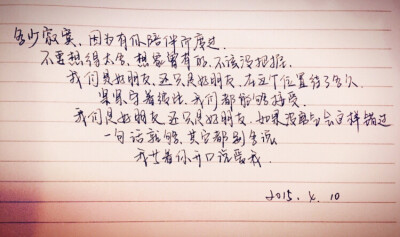 多少寂寞，因为有你陪伴而度过．
不要想得太多，想象曾有的，不该没把握．
我们是好朋友，还只是好朋友，在这个位置待了多久
紧守着，我们都能够接受．
我们是好朋友，还只是好朋友，如果就会这样错过
一句话就够，其它都别多说．
我等着你开口说爱我．
2015. 4. 10